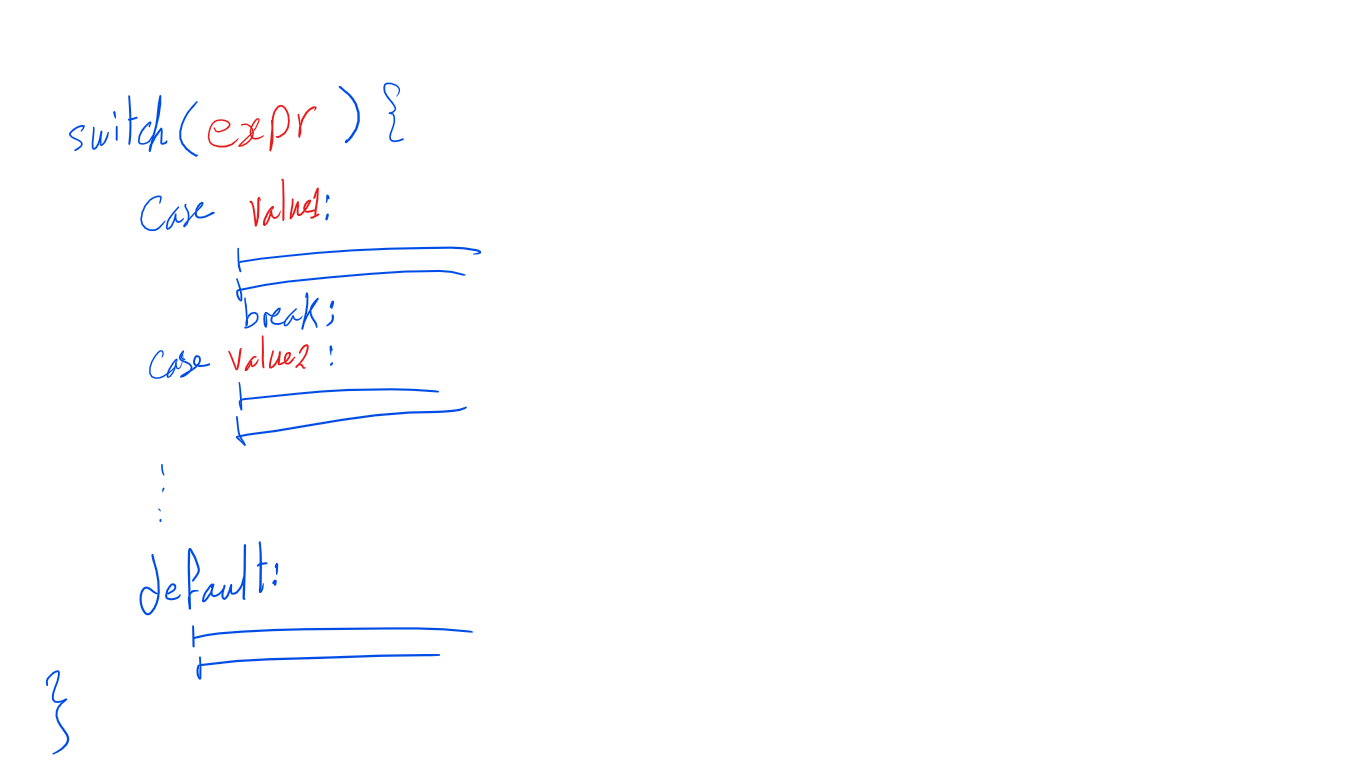 switch(expr){
Case value1:
break;
Case value2:
default:
}